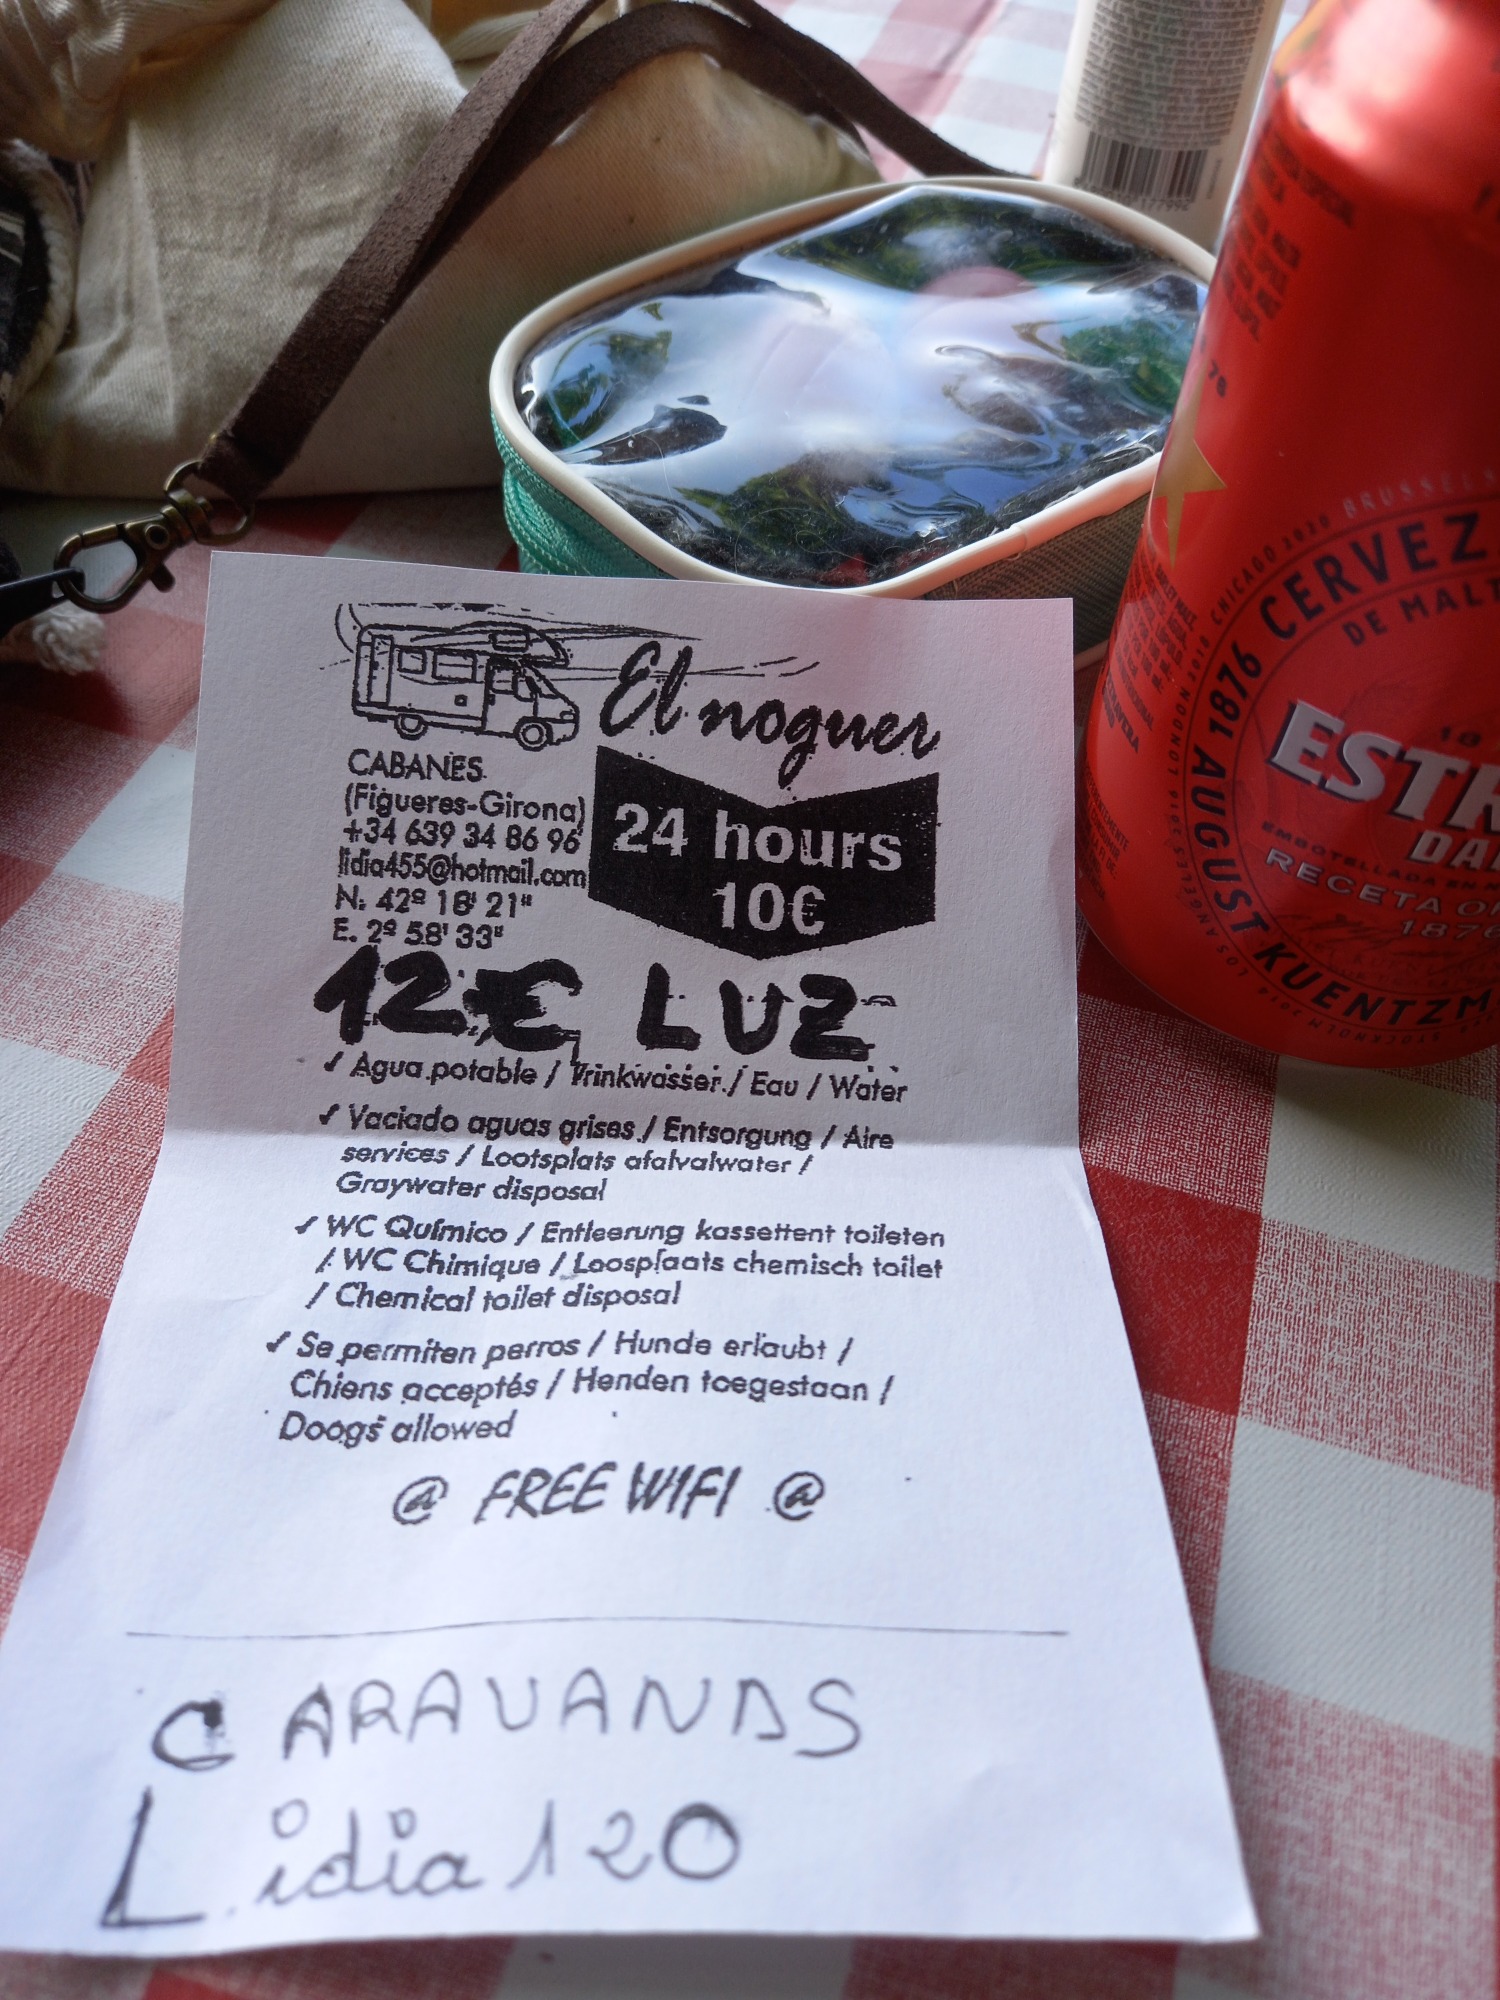 El noguer
CABANES
(Figueres-Girona)
+34 639 34 86 96
lidia455@hotmail.com
N. 42º 18' 21"
E. 2º 58' 33"
24 hours
10€
12€ LUZ
✓ Agua potable / Trinkwasser / Eau / Water
✓ Vaciado aguas grises / Entsorgung / Aire
services / Lootsplats afalvalwater /
Graywater disposal
✓ WC Químico / Entleerung kassettent toileten
/ WC Chimique / Loosplaats chemisch toilet
/ Chemical toilet disposal
✓ Se permiten perros / Hunde erlaubt /
Chiens acceptés / Henden toegestaan /
Doogs allowed
@ FREE WIFI @
CARAVANAS
Lidia 120
BRUSSELS
CHICAGO 2020
LONDON 2018
LOS ANGELES
STOCKHOLM
CERVEZ
DE MALT
1876
AUGUST KUENTZM
ESTR
DA
RECETA
1876